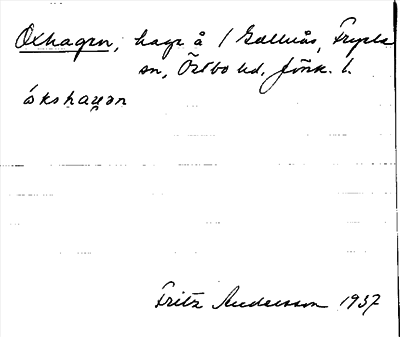 Oxhagen, hage å 1 Gällnås, Fryele
sn, Östbo hd, Jönk. l.
ókshaŋən
Fritz Andersson 1937